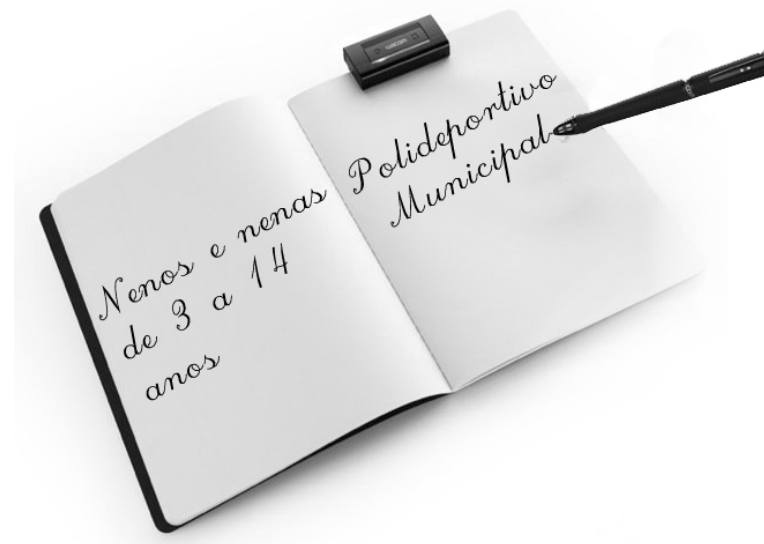 Nenos e nenas
de 3 a 14
anos
Polideportivo
Municipal
wacom